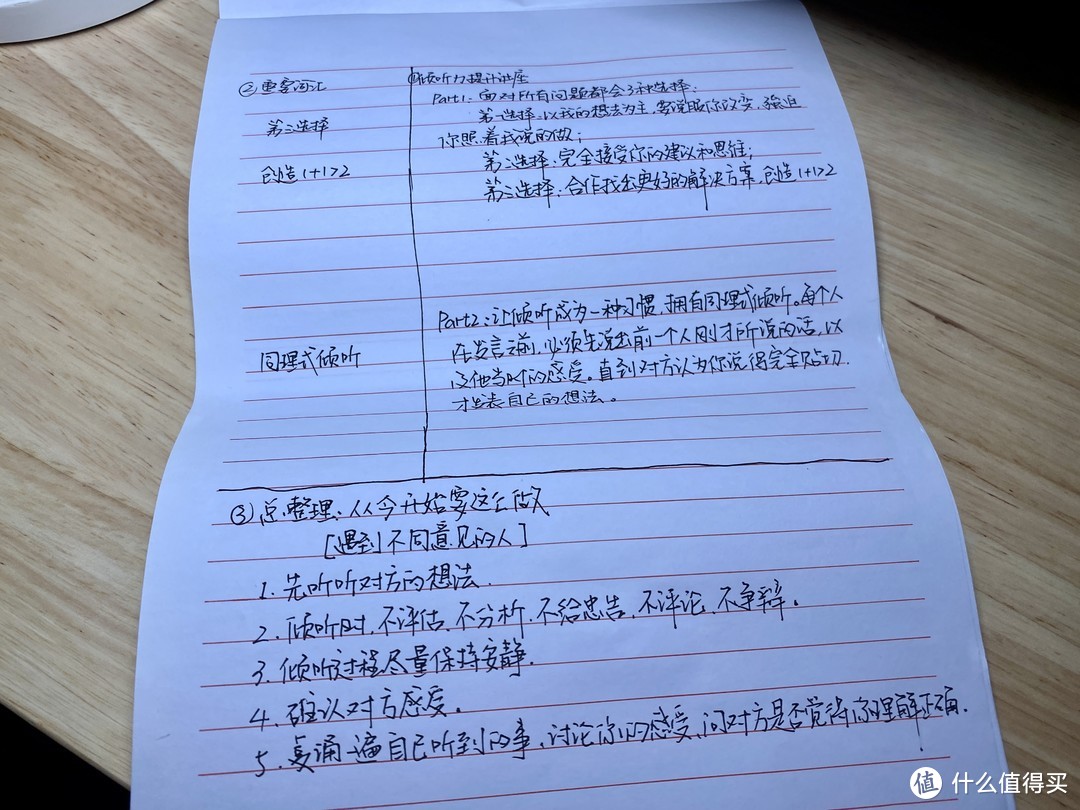 ②重要词汇
第三选择
创造1+1>2
同理式倾听
①倾听力提升讲座
Part1: 面对所有问题都会3种选择:
第一选择:以我的想法为主,要说服你改变,强迫
你照着我说的做;
第二选择:完全接受你的建议和思维;
第三选择:合作找出更好的解决方案,创造1+1>2
Part2:让倾听成为一种习惯,拥有同理式倾听。每个人
在发言之前,必须先说出前一个人刚才所说的话,以
及他当时的感受。直到对方认为你说得完全贴切.
才发表自己的想法。
③总整理:从今开始要这么做
[遇到不同意见的人]
1.先听听对方的想法.
2.倾听时,不评估、不分析、不给忠告、不评论、不争辩。
3.倾听过程尽量保持安静.
4.确认对方感受。
5.复诵一遍自己听到的事,讨论你的感受,问对方是否觉得你理解正确.
值 什么值得买